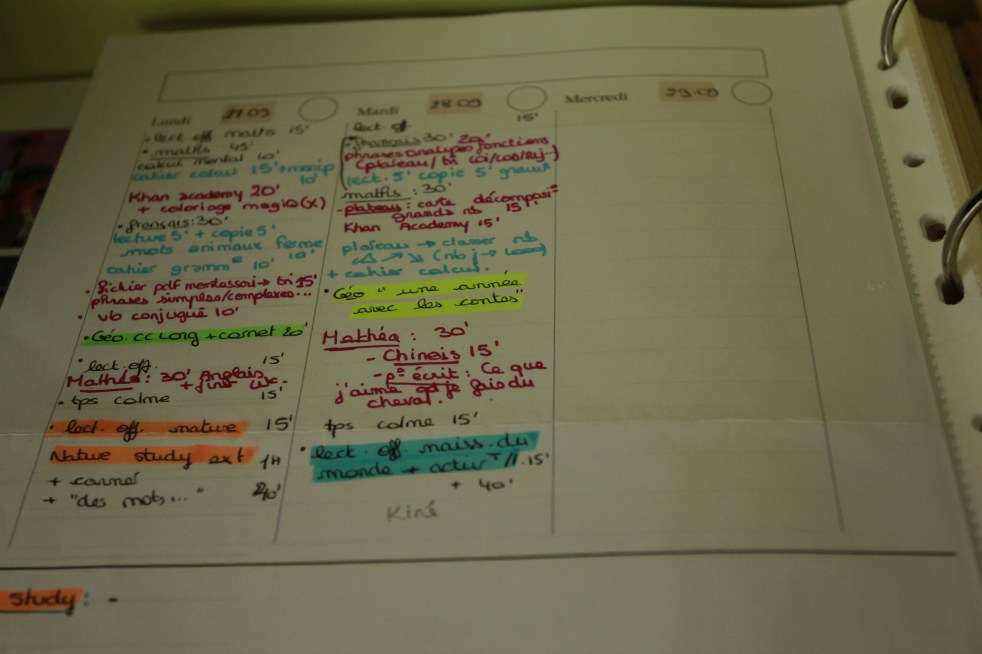 Lundi 27.09
• lect. off maths 15'
• maths 45'
calcul mental 10'
cahier calcul 15' + manip
10'
Khan academy 20'
+ coloriage magiq (x)
• français : 30'
lecture 5' + copie 5'
mots animaux ferme
10'
cahier gramm^re 10'
• fichier pdf montessori → tri 15'
phrases simples/complexes...
• vb conjugué 10'
• Géo. CC Long + carnet 20'
• lect. off. 15'
Mathéa : 30' Anglais
• tps calme 15'
• lect. off. nature 15'
Nature study ext 1H
+ carnet
+ "des mots..."
Mardi 28.09
lect. off 15'
• français 30' 20'
phrases analyse fonctions
(plateau/ tri
lect. 5' copie 5'
maths : 30'
- plateau : carte décomposi°
grands nb 15'
Khan Academy 15'
plateau → classer nb
(nb j → 1000)
+ cahier calcul.
• Géo "une année
avec les contes"
Mathéa : 30'
- Chinois 15'
- p° écrit : Ce que
j'aime je fais du
cheval.
tps calme 15'
• lect. off. naiss. du
monde + activ^T // 15'
+ 40'
Kiné
Mercredi 29.09
Study : -